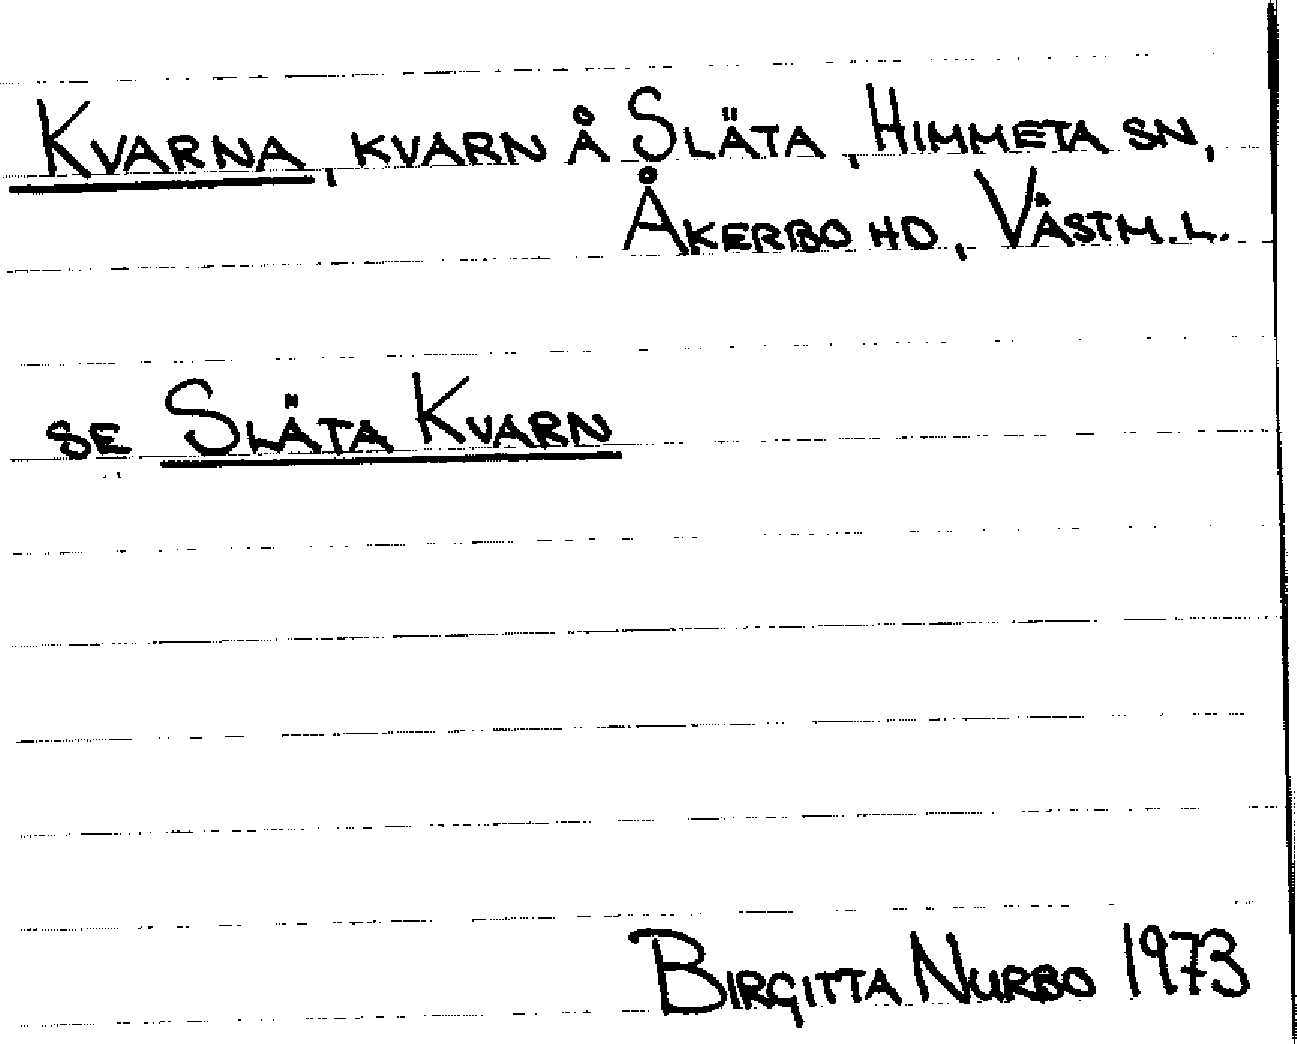 Kvarna, kvarn å Släta, Himmeta sn,
Åkerbo hd, Västm.l.
se Släta Kvarn
Birgitta Nurbo 1973